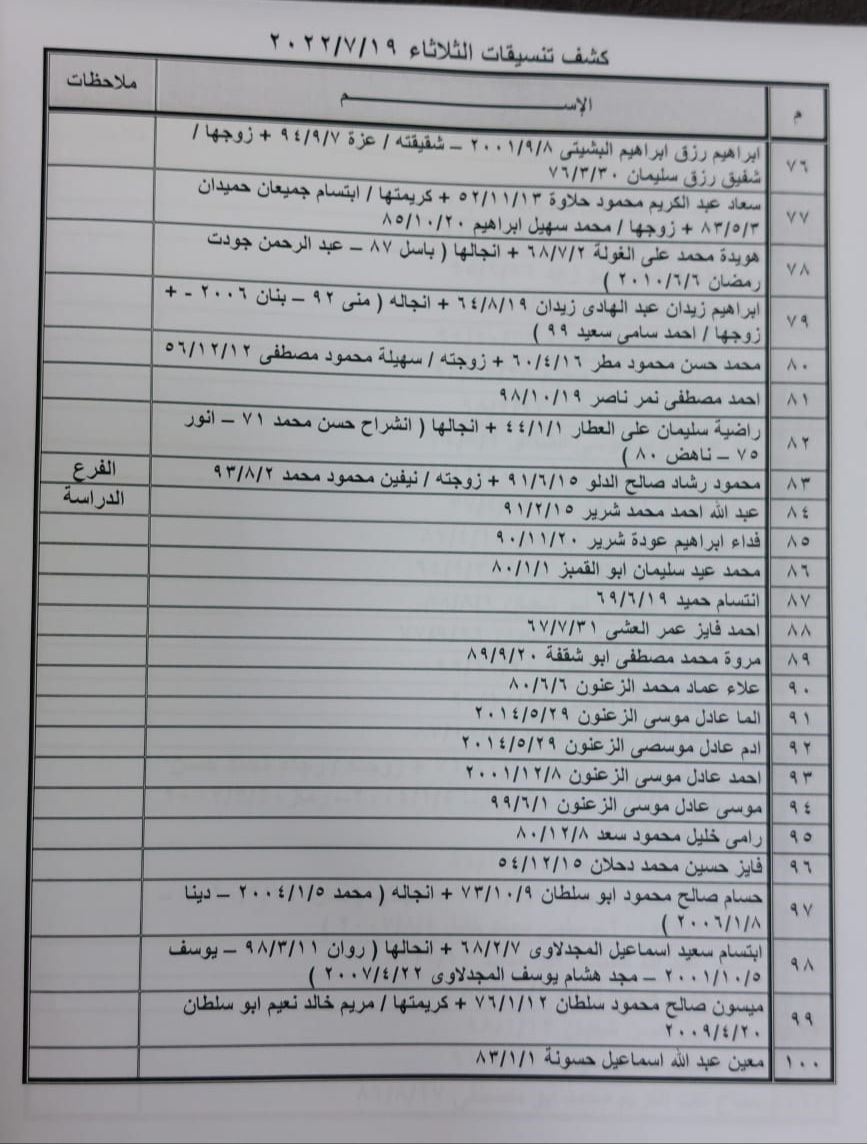 كشف تنسيقات الثلاثاء ٢٠٢٢/٧/١٩
م الإســــــــــم ملاحظات
٧٦ ابراهيم رزق ابراهيم البشيتى ٢٠٠١/٩/٨ – شقيقته / عزة ٩٤/٩/٧ + زوجها /
شفيق رزق سليمان ٧٦/٣/٣٠
٧٧ سعاد عبد الكريم محمود حلاوة ٥٢/١١/١٣ + كريمتها / ابتسام جميعان حميدان
٨٣/٥/٣ + زوجها / محمد سهيل ابراهيم ٨٥/١٠/٢٠
٧٨ هويدة محمد على الغولة ٦٨/٧/٢ + انجالها ( باسل ٨٧ – عبد الرحمن جودت
رمضان ٢٠١٠/٦/٦ )
٧٩ ابراهيم زيدان عبد الهادى زيدان ٦٤/٨/١٩ + انجاله ( منى ٩٢ – بنان ٢٠٠٦ - +
زوجها / احمد سامى سعيد ٩٩ )
٨٠ محمد حسن محمود مطر ٦٠/٤/١٦ + زوجته / سهيلة محمود مصطفى ٥٦/١٢/١٢
٨١ احمد مصطفى نمر ناصر ٩٨/١٠/١٩
٨٢ راضية سليمان على العطار ٤٤/١/١ + انجالها ( انشراح حسن محمد ٧١ – انور
٧٥ – ناهض ٨٠ )
٨٣ محمود رشاد صالح الدلو ٩١/٦/١٥ + زوجته / نيفين محمود محمد ٩٣/٨/٢ الفرع
٨٤ عبد الله احمد محمد شرير ٩١/٢/١٥ الدراسة
٨٥ فداء ابراهيم عودة شرير ٩٠/١١/٢٠
٨٦ محمد عيد سليمان ابو القمبز ٨٠/١/١
٨٧ انتسام حميد ٦٩/٦/١٩
٨٨ احمد فايز عمر العشى ٦٧/٧/٣١
٨٩ مروة محمد مصطفى ابو شقفة ٨٩/٩/٢٠
٩٠ علاء عماد محمد الزعنون ٨٠/٦/٦
٩١ الما عادل موسى الزعنون ٢٠١٤/٥/٢٩
٩٢ ادم عادل موسصى الزعنون ٢٠١٤/٥/٢٩
٩٣ احمد عادل موسى الزعنون ٢٠٠١/١٢/٨
٩٤ موسى عادل موسى الزعنون ٩٩/٦/١
٩٥ رامى خليل محمود سعد ٨٠/١٢/٨
٩٦ فايز حسين محمد دحلان ٥٤/١٢/١٥
٩٧ حسام صالح محمود ابو سلطان ٧٣/١٠/٩ + انجاله ( محمد ٢٠٠٤/١/٥ – دينا
٢٠٠٦/١/٨ )
٩٨ ابتسام سعيد اسماعيل المجدلاوى ٦٨/٢/٧ + انحالها ( روان ٩٨/٣/١١ – يوسف
٢٠٠١/١٠/٥ – مجد هشام يوسف المجدلاوى ٢٠٠٧/٤/٢٢ )
٩٩ ميسون صالح محمود سلطان ٧٦/١/١٢ + كريمتها / مريم خالد نعيم ابو سلطان
٢٠٠٩/٤/٢٠
١٠٠ معين عبد الله اسماعيل حسونة ٨٣/١/١